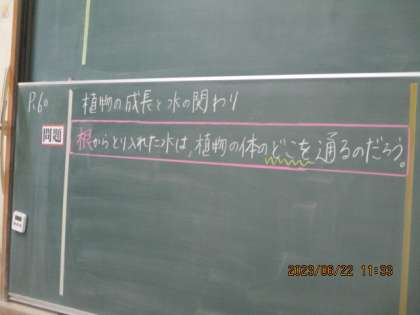 P.60 植物の成長と水の関わり
問題 根からとり入れた水は、植物の体のどこを通るのだろう。
2023/06/22 11:33